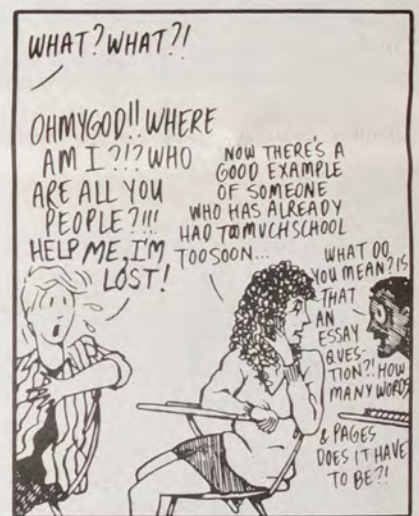 WHAT? WHAT?!
OHMYGOD!! WHERE
AM I?!? WHO
ARE ALL YOU
PEOPLE?!!!
HELP ME, I'M
LOST!
NOW THERE'S A
GOOD EXAMPLE
OF SOMEONE
WHO HAS ALREADY
HAD TOO MUCH SCHOOL
TOO SOON...
WHAT DO
YOU MEAN? IS
THAT
AN
ESSAY
QUES-
TION?! HOW
MANY WORDS
& PAGES
DOES IT HAVE
TO BE?!